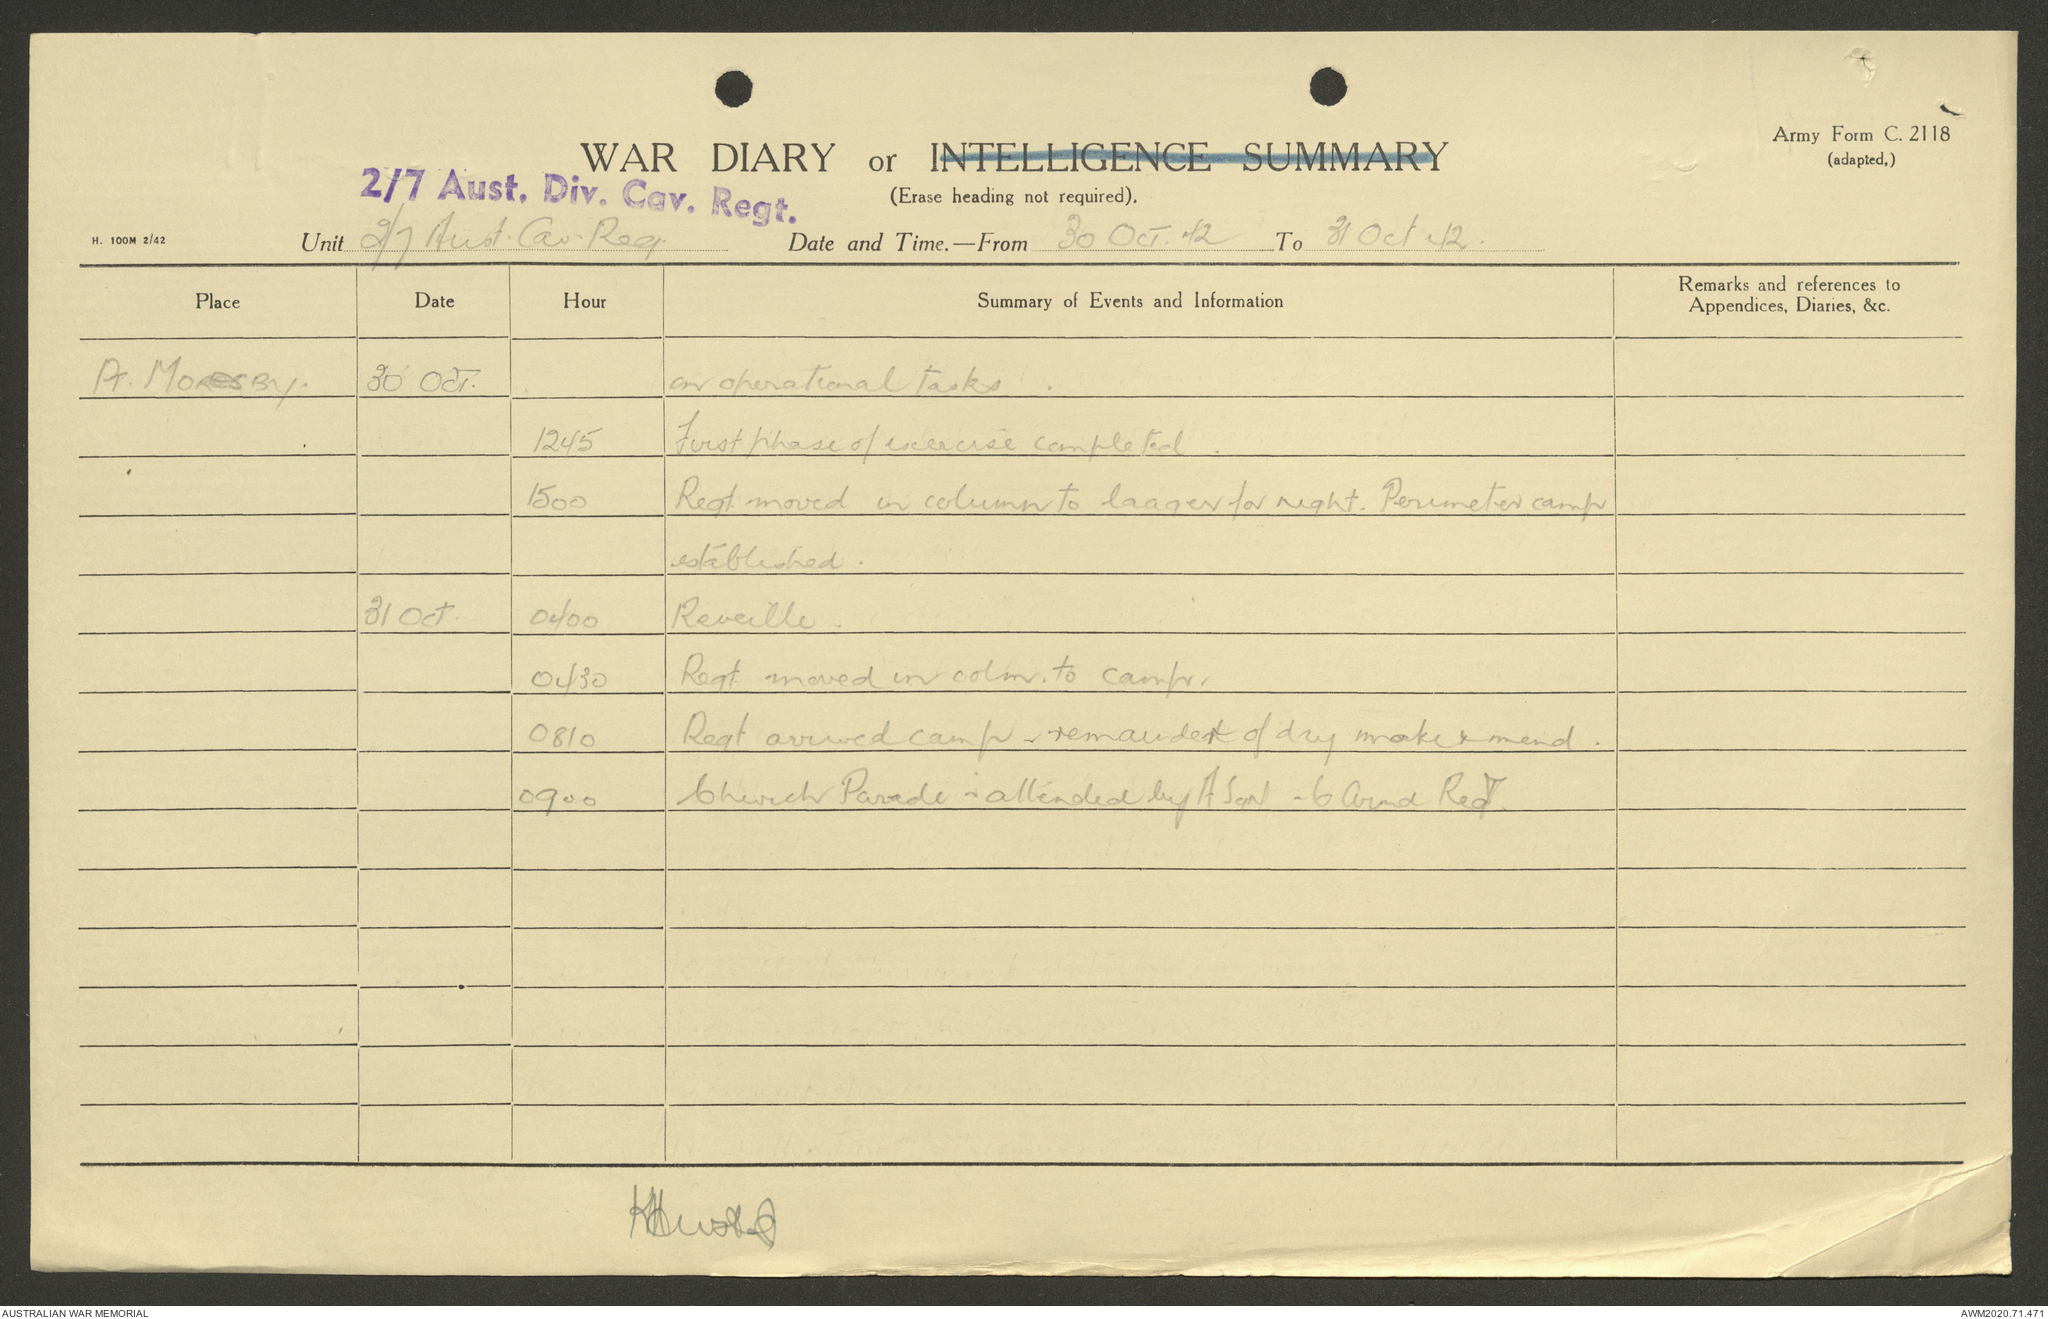 Army Form C. 2118
(adapted.)
WAR DIARY or INTELLIGENCE SUMMARY
(Erase heading not required).
2/7 Aust. Div. Cav. Regt.
H. 100M 2/42
Unit 2/7 Aust. Cav. Reg. Date and Time.—From 30 Oct. 42 To 31 Oct 42.
Place Date Hour Summary of Events and Information Remarks and references to
Appendices, Diaries, &c.
Pt. Moresby. 30 Oct. on operational tasks.
1245 First phase of exercise completed.
1500 Regt. moved in column to laager for night. Perimeter camp
established.
31 Oct. 0400 Reveille.
0430 Regt moved in colm. to camp.
0810 Regt arrived camp - remainder of day make & mend.
0900 Church Parade - attended by A Sqn - 6 Armd Regt.
AUSTRALIAN WAR MEMORIAL
AWM2020.71.471